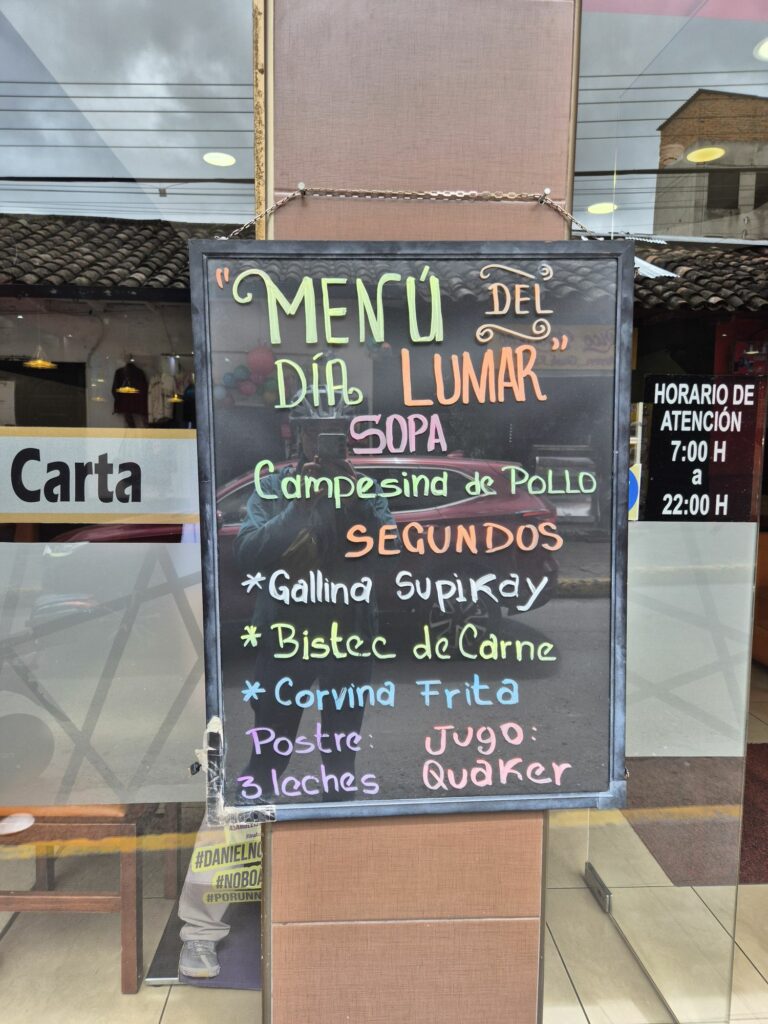 "MENÚ DEL
DÍA LUMAR"
SOPA
Campesina de POLLO
SEGUNDOS
*Gallina Supikay
* Bistec de Carne
* Corvina Frita
Postre: Jugo:
3 leches Quaker
Carta
HORARIO DE
ATENCIÓN
7:00 H
a
22:00 H
#DANIELNO
#NOBOA